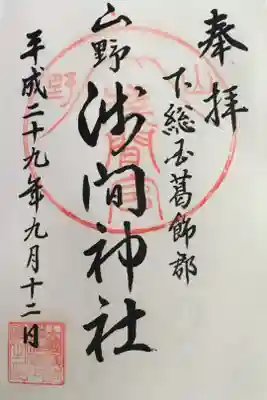 奉拝
下総国葛飾郡
山野
浅間神社
平成二十九年九月十二日
山野
浅間宮